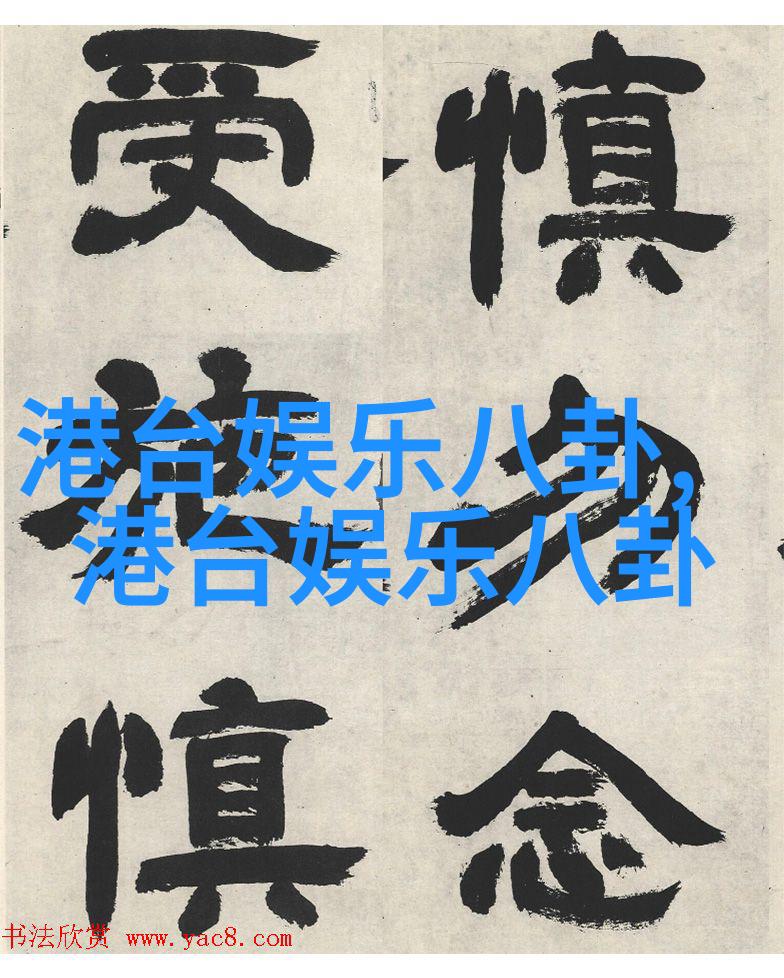 慎勿念
受施慎
港台娱乐八卦,
港台娱乐八卦
书法欣赏 www.yac8.com